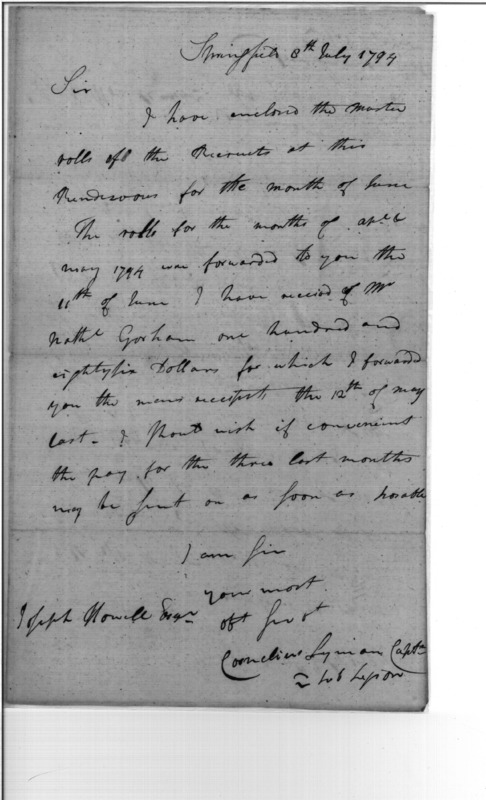 Springfield 8th July 1794
Sir
I have enclosed the Muster
rolls off the Recruits at this
Rendezvous for the month of June
The rolls for the months of Apl &
may 1794 was forwarded to you the
11th of June I have received of Mr
Nathl Gorham one hundred and
eightysix Dollars for which I forwarded
you the mens receipts the 12th of may
last - I Should wish if convenient
the pay for the three last months
may be Sent on as soon as possable
I am Sir
your most
Obt Servt
Joseph Howell Esqr
Cornelius Lyman Captn
Sub Legion